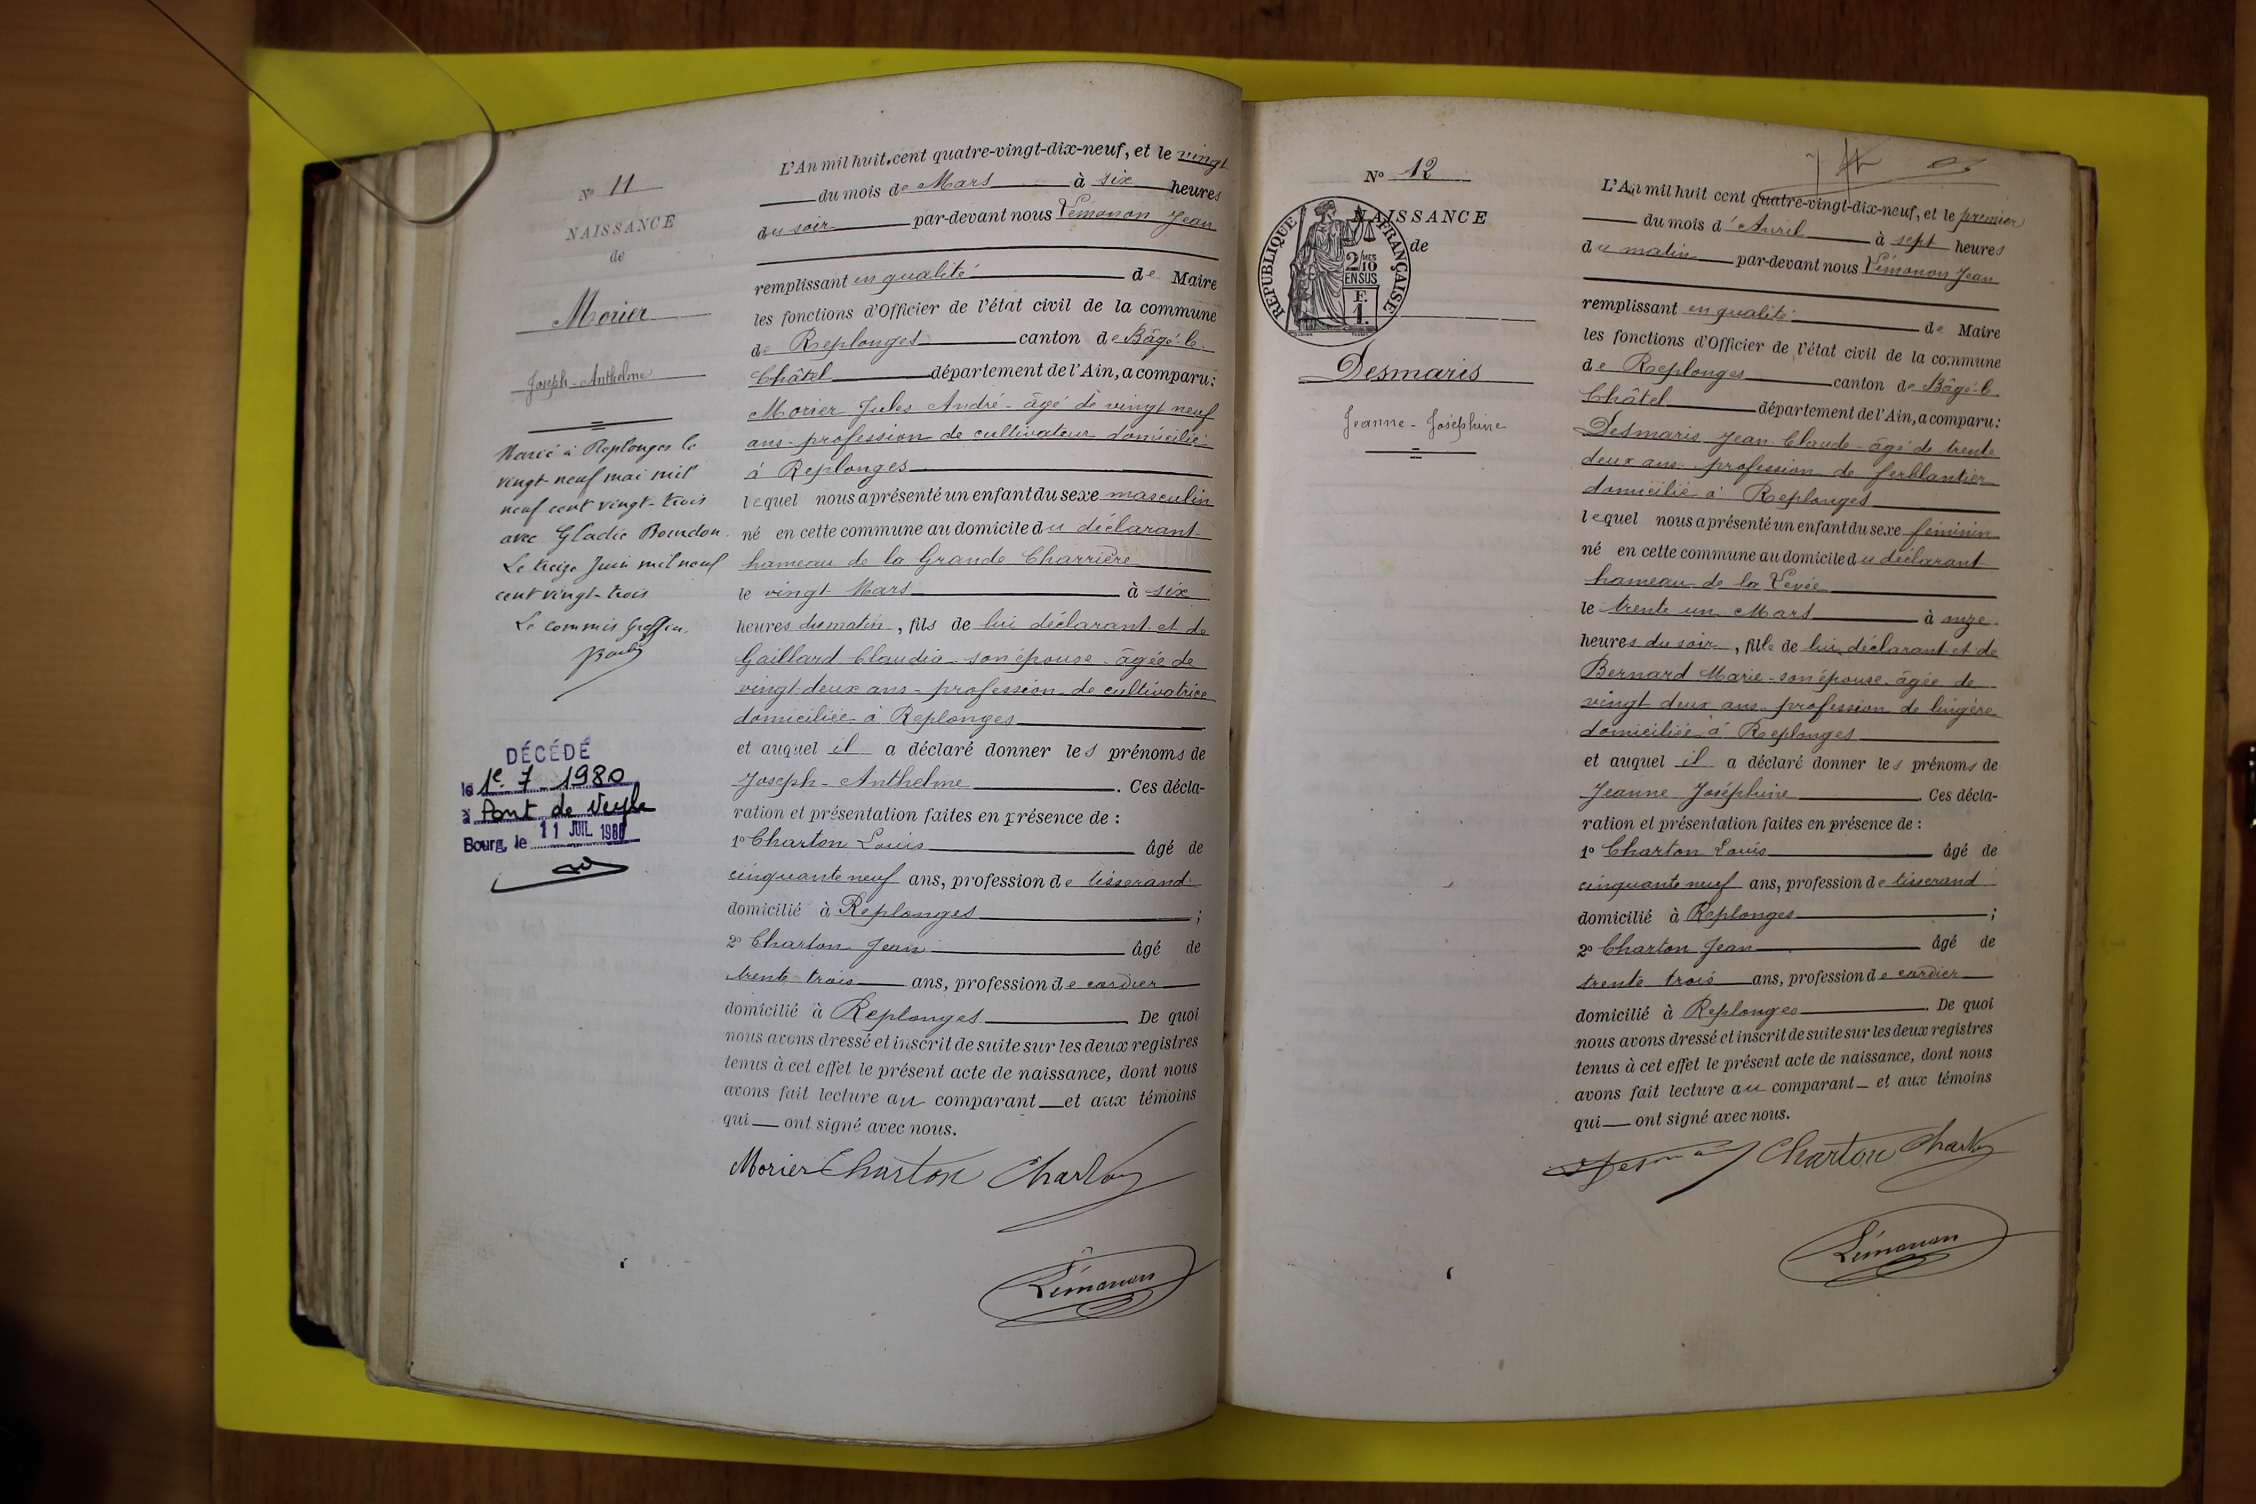 N° 11
NAISSANCE
de
Morier
Joseph-Anthelme
Marié à Replonges le
vingt-neuf mai mil
neuf cent vingt-trois
avec Gladie Bourdon.
Le treize Juin mil neuf
cent vingt-trois
Le commis Greffier
DÉCÉDÉ
le 1e 7 1980
à Pont de Veyle
Bourg, le 11 JUIL 1980
L'An mil huit cent quatre-vingt-dix-neuf, et le vingt
du mois de Mars à six heures
du soir par-devant nous Lémonon Jean
remplissant en qualité de Maire
les fonctions d'Officier de l'état civil de la commune
de Replonges canton de Bâgé-le-
Châtel département de l'Ain, a comparu:
Morier Jules André - âgé de vingt neuf
ans - profession de cultivateur domicilié
à Replonges
lequel nous a présenté un enfant du sexe masculin
né en cette commune au domicile du déclarant
hameau de la Grande Charrière
le vingt Mars à six
heures du matin, fils de lui déclarant et de
Gaillard Claudia son épouse - âgée de
vingt deux ans - profession de cultivatrice
domiciliée à Replonges
et auquel il a déclaré donner les prénoms de
Joseph-Anthelme. Ces décla-
ration et présentation faites en présence de :
1° Charton Louis âgé de
cinquante neuf ans, profession de tisserand
domicilié à Replonges ;
2° Charton Jean âgé de
trente-trois ans, profession de cordier
domicilié à Replonges. De quoi
nous avons dressé et inscrit de suite sur les deux registres
tenus à cet effet le présent acte de naissance, dont nous
avons fait lecture au comparant et aux témoins
qui ont signé avec nous.
Morier Charton Charton
Lémonon
N° 12
NAISSANCE
de
RÉPUBLIQUE FRANÇAISE
2/MES
10
EN SUS
F.
1.
Desmaris
Jeanne-Joséphine
L'An mil huit cent quatre-vingt-dix-neuf, et le premier
du mois d'Avril à sept heures
du matin par-devant nous Lémonon Jean
remplissant en qualité de Maire
les fonctions d'Officier de l'état civil de la commune
de Replonges canton de Bâgé-le
Châtel département de l'Ain, a comparu:
Desmaris Jean Claude - âgé de trente
deux ans - profession de ferblantier
domicilié à Replonges
lequel nous a présenté un enfant du sexe féminin
né en cette commune au domicile du déclarant
hameau de la Levée
le trente un Mars à onze
heures du soir, fille de lui déclarant et de
Bernard Marie son épouse âgée de
vingt deux ans - profession de lingère
domiciliée à Replonges
et auquel il a déclaré donner les prénoms de
Jeanne Joséphine. Ces décla-
ration et présentation faites en présence de :
1° Charton Louis âgé de
cinquante neuf ans, profession de tisserand
domicilié à Replonges ;
2° Charton Jean âgé de
trente trois ans, profession de cordier
domicilié à Replonges. De quoi
nous avons dressé et inscrit de suite sur les deux registres
tenus à cet effet le présent acte de naissance, dont nous
avons fait lecture au comparant et aux témoins
qui ont signé avec nous.
Charton Charton
Lémonon